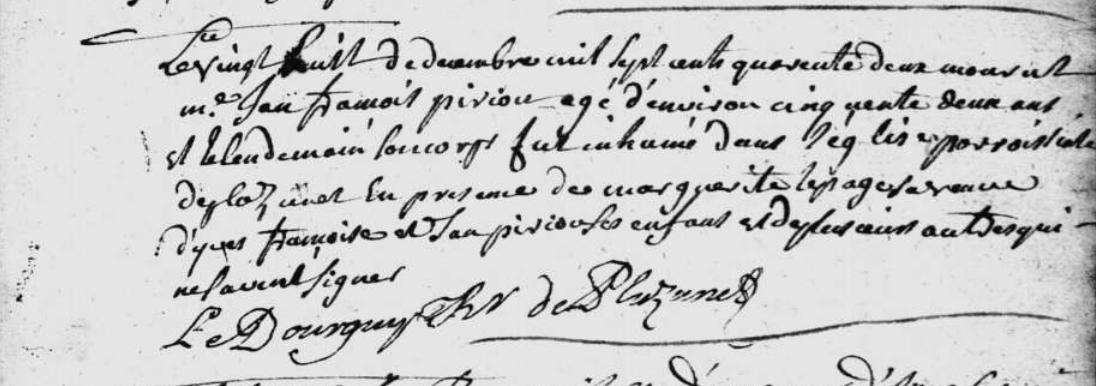 Le vingt huit de decembre mil sept cents quarente deux mourut
m.e Jan françois piriou agé d'environ cinquente deux ans
et le lendemain son corps fut inhumé dans l'église parroissiale
de plozunet En presence de marguerite le page sa veuve
d'yves françoise et Jan piriou ses enfants et de plusieurs autres qui
ne savent signer
Le Dourguy de Pluzunet